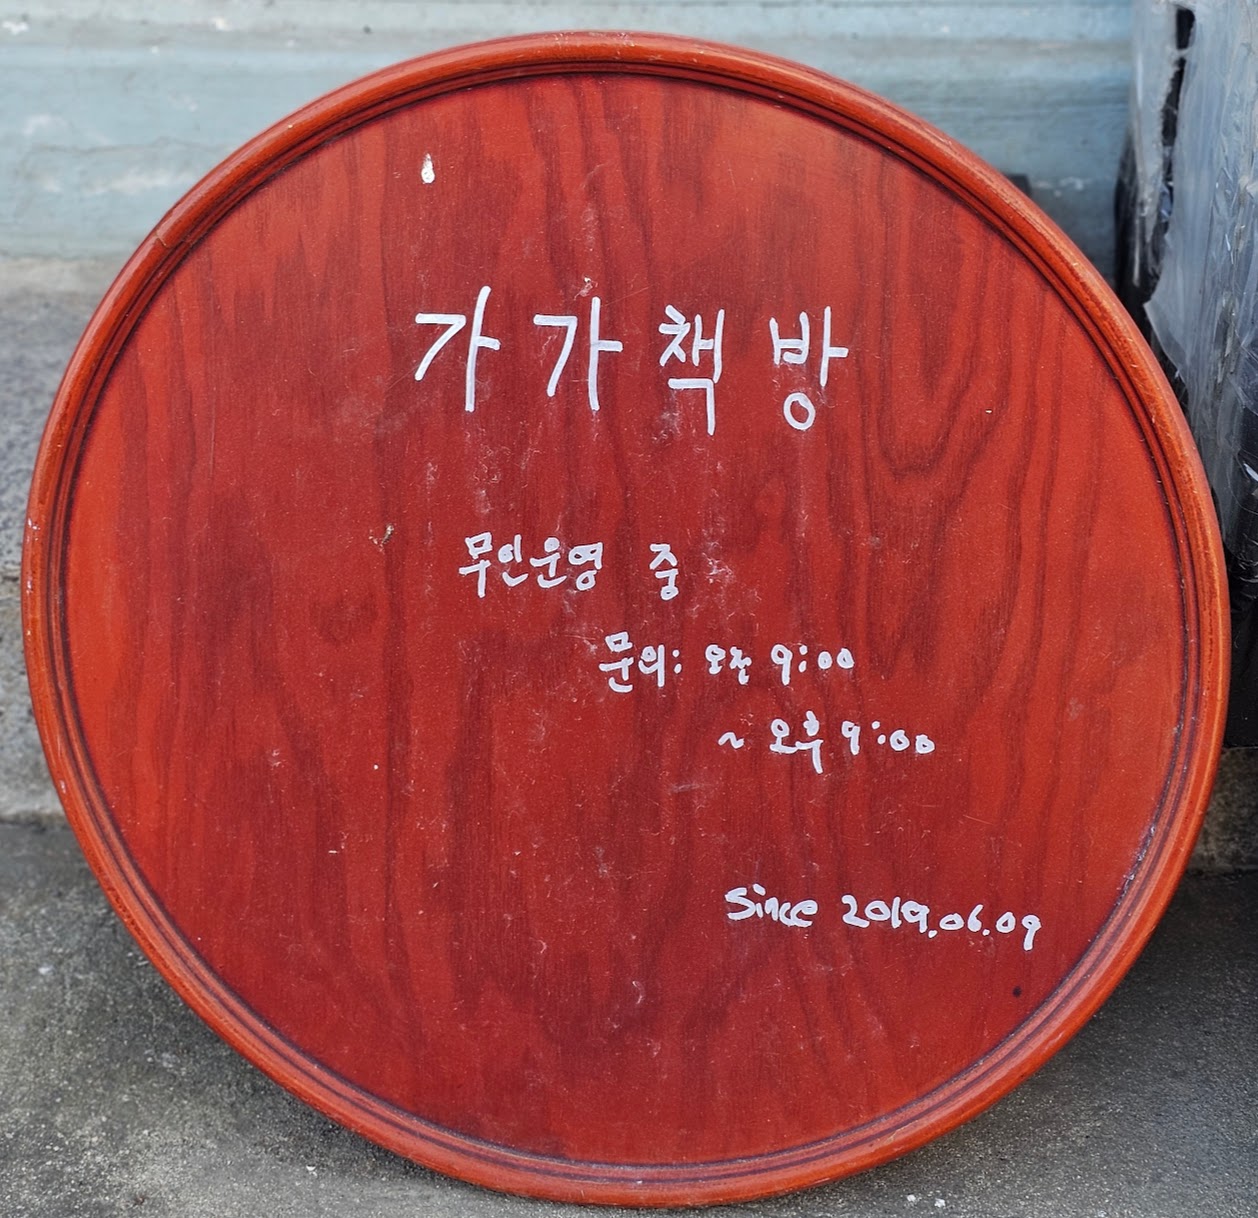 가가책방
무인운영 중
문의: 오전 9:00
~ 오후 9:00
Since 2019.06.09